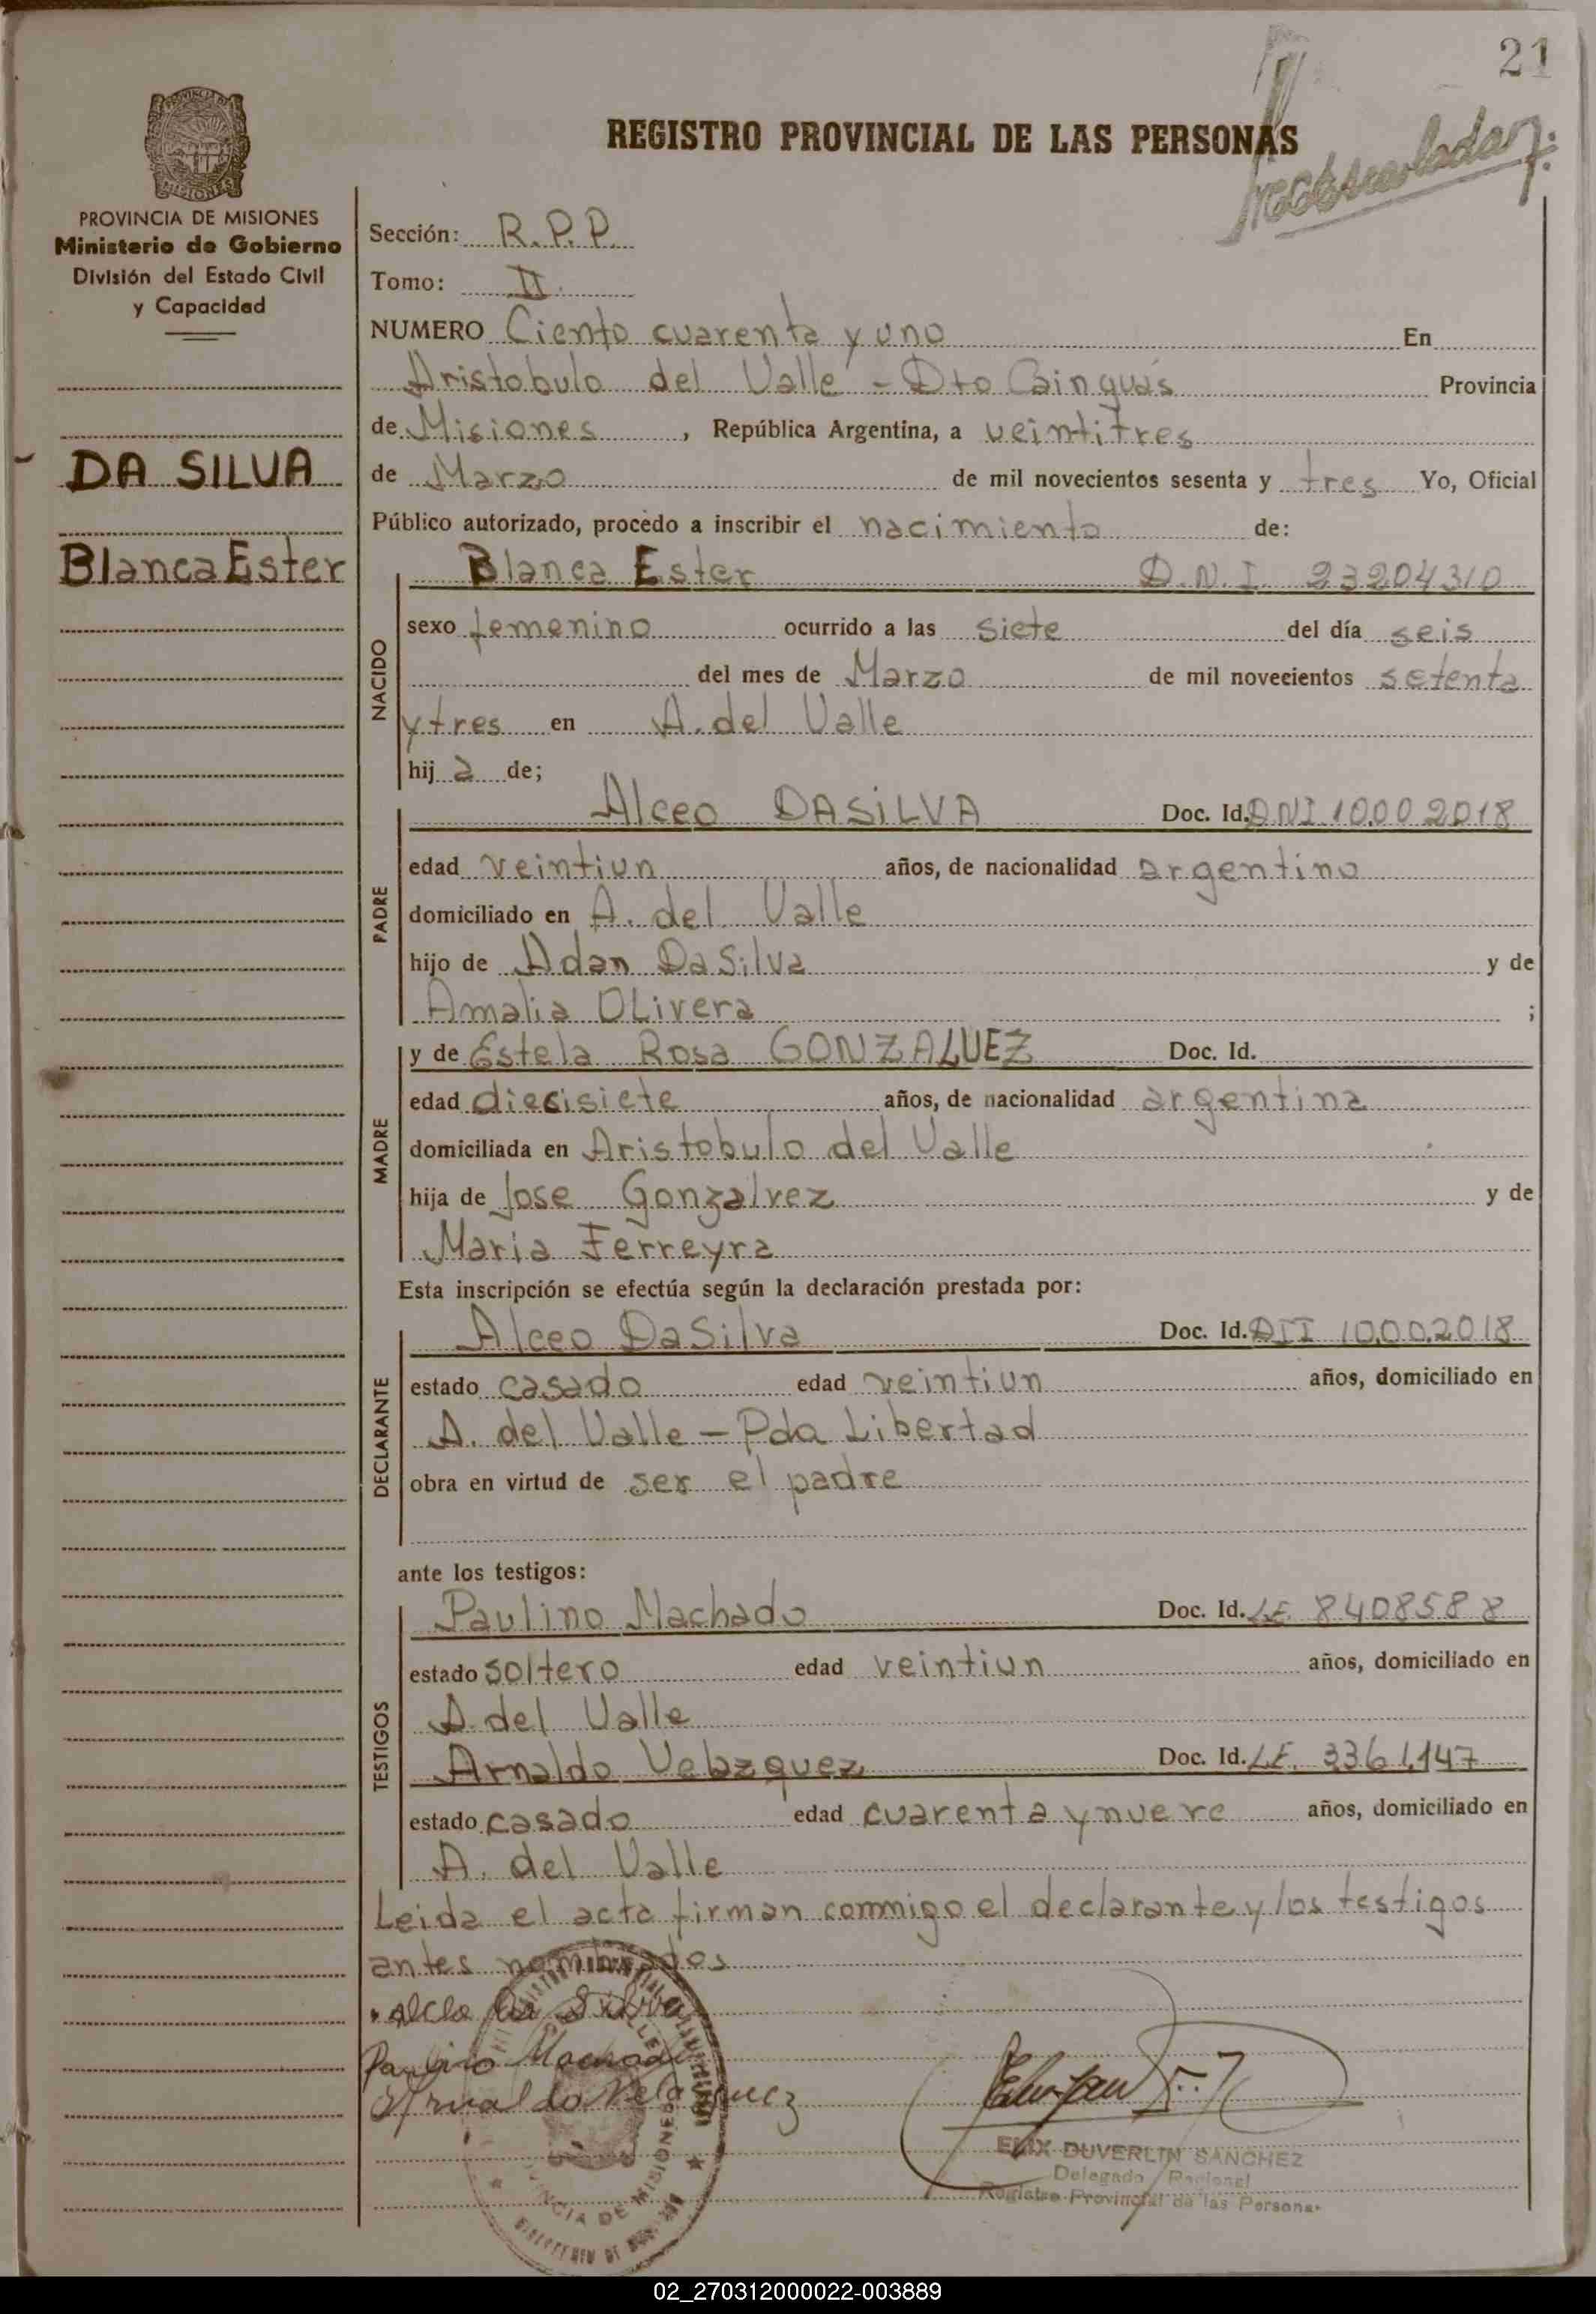 21
PROVINCIA DE
MISIONES
REGISTRO PROVINCIAL DE LAS PERSONAS
PROVINCIA DE MISIONES
Ministerio de Gobierno
División del Estado Civil
y Capacidad
DA SILVA
Blanca Ester
Sección: R.P.P.
Tomo: II.
NUMERO Ciento cuarenta y uno En
Aristobulo del Valle - Dto Cainguás Provincia
de Misiones, República Argentina, a veintitres
de Marzo de mil novecientos sesenta y tres Yo, Oficial
Público autorizado, procedo a inscribir el nacimiento de:
NACIDO
Blanca Ester D.N.I. 23204310
sexo femenino ocurrido a las siete del día seis
del mes de Marzo de mil novecientos setenta
y tres en A. del Valle
hij a de;
PADRE
Alceo DASILVA Doc. Id. DNI 10.00 2018
edad veintiun años, de nacionalidad argentino
domiciliado en A. del Valle
hijo de Adan DaSilva y de
Amalia OLivera ;
MADRE
y de Estela Rosa GONZALVEZ Doc. Id.
edad diecisiete años, de nacionalidad argentina
domiciliada en Aristobulo del Valle
hija de Jose Gonzalvez y de
Maria Ferreyra
Esta inscripción se efectúa según la declaración prestada por:
DECLARANTE
Alceo DaSilva Doc. Id. DII 10.00.2018
estado casado edad veintiun años, domiciliado en
A. del Valle - Pda Libertad
obra en virtud de ser el padre
ante los testigos:
TESTIGOS
Paulino Machado Doc. Id. LE. 8408588
estado soltero edad veintiun años, domiciliado en
A. del Valle
Arnaldo Velazquez Doc. Id. LE. 3361.147
estado casado edad cuarenta y nueve años, domiciliado en
A. del Valle
Leida el acta firman conmigo el declarante y los testigos
antes nombrados
Alceo Da Silva
Paulino Machado
Arnaldo Velazquez
PROVINCIA DE MISIONES
ELIX DUVERLIN SANCHEZ
Delegado Regional
Registro Provincial de las Personas
02_270312000022-003889